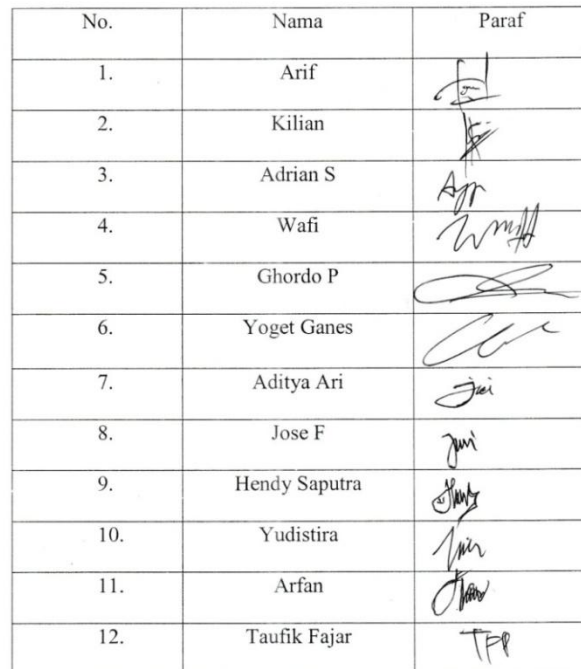 No. Nama Paraf
1. Arif
2. Kilian
3. Adrian S
4. Wafi
5. Ghordo P
6. Yoget Ganes
7. Aditya Ari
8. Jose F
9. Hendy Saputra
10. Yudistira
11. Arfan
12. Taufik Fajar